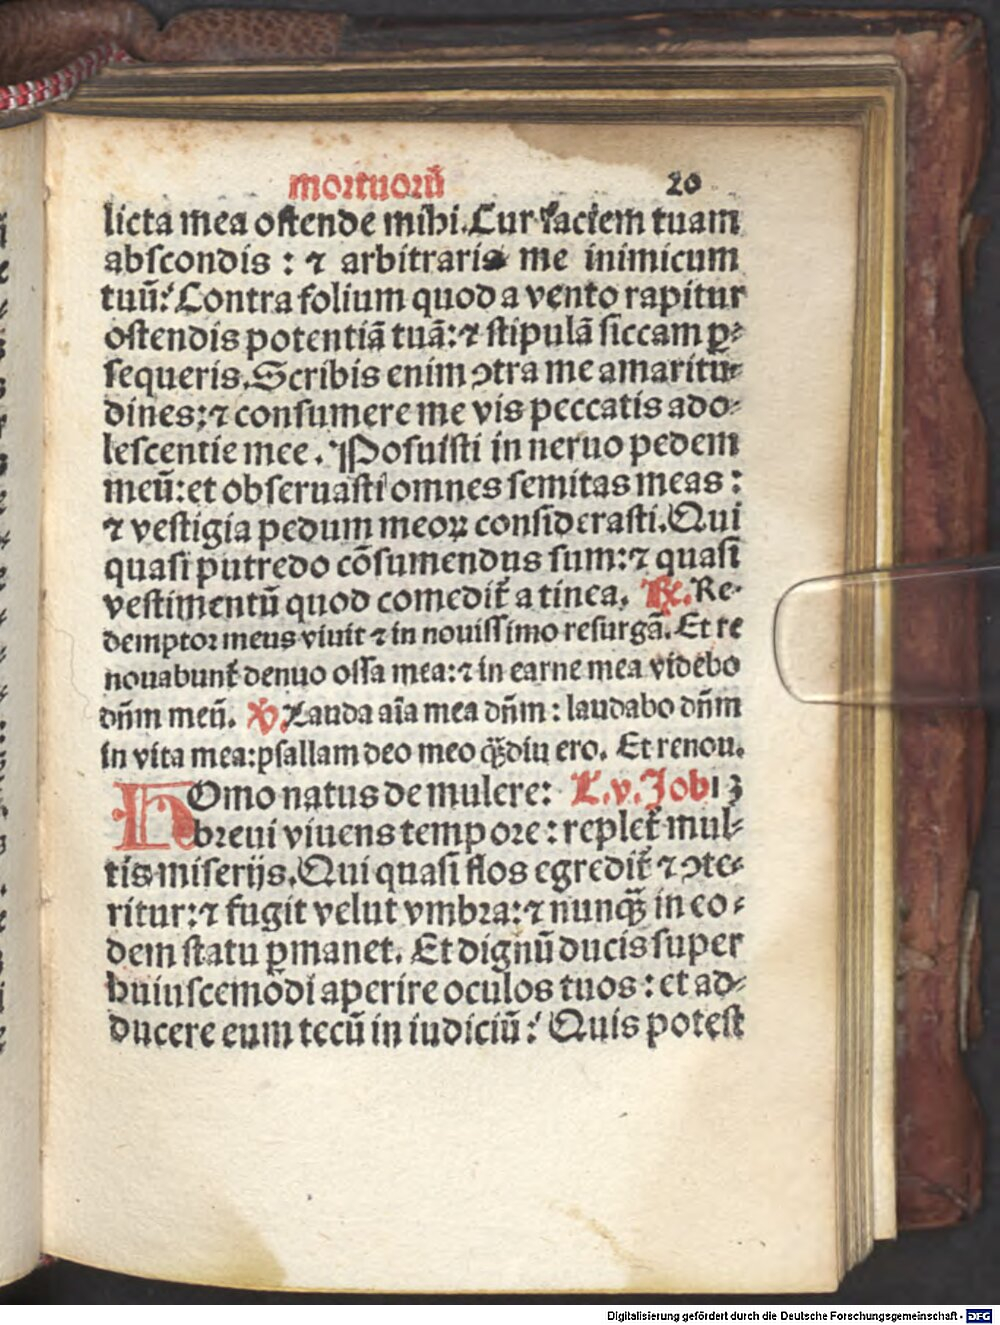 mortuorū 20
licta mea ostende mihi. Cur faciem tuam
abscondis : ⁊ arbitraris me inimicum
tuū? Contra folium quod a vento rapitur
ostendis potentiā tuā: ⁊ stipulā siccam ꝑ⸗
sequeris. Scribis enim ↄtra me amaritu⸗
dines: ⁊ consumere me vis peccatis ado⸗
lescentie mee. Posuisti in neruo pedem
meū: et obseruasti omnes semitas meas :
⁊ vestigia pedum meoꝝ considerasti. Qui
quasi putredo cōsumendus sum: ⁊ quasi
vestimentū quod comedit᷑ a tinea. ℞. Re⸗
demptor meus viuit ⁊ in nouissimo resurgā. Et re
nouabunt᷑ denuo ossa mea: ⁊ in carne mea videbo
dn̄m meū. ℣. Lauda aīa mea dn̄m : laudabo dn̄m
in vita mea: psallam deo meo qᷓ̄diu ero. Et renou.
HOmo natus de muliere: L. v. Job 13
breui viuens tempore : replet᷑ mul⸗
tis miserijs. Qui quasi flos egredit᷑ ⁊ ↄte⸗
ritur: ⁊ fugit velut vmbra: ⁊ nunqᷓ̄ in eo⸗
dem statu ꝑmanet. Et dignū ducis super
huiuscemodi aperire oculos tuos : et ad⸗
ducere eum tecū in iudiciū? Quis potest
Digitalisierung gefördert durch die Deutsche Forschungsgemeinschaft - DFG